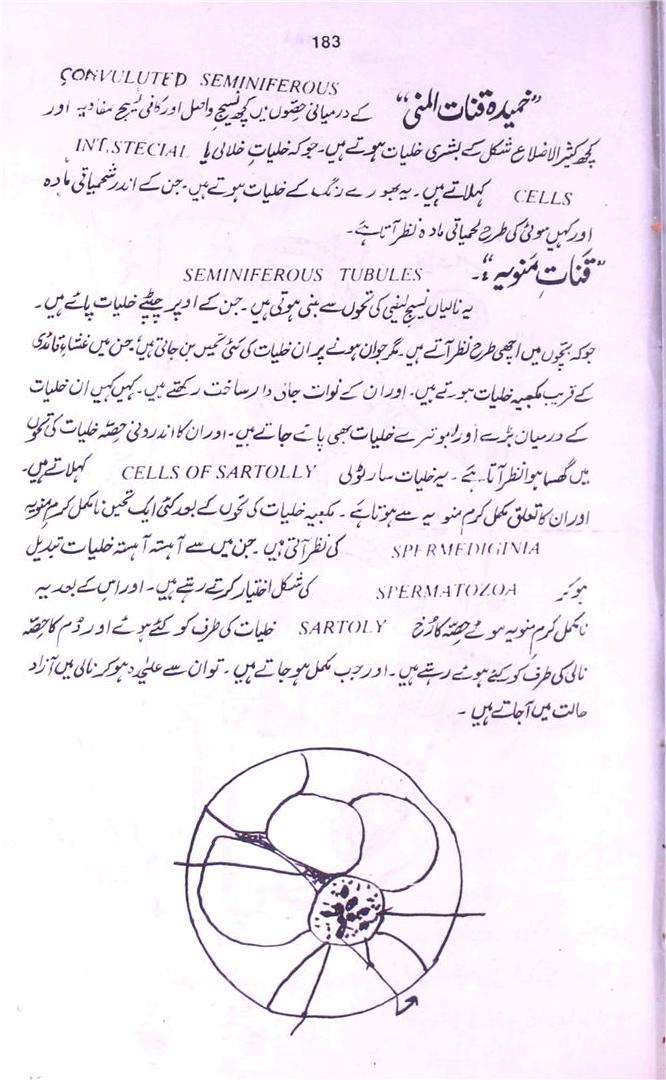 183
CONVULUTED SEMINIFEROUS
”خمیدہ قنات المنی“ کے درمیانی حصّوں میں کچھ نسیج واصل اور کافی نسیج مفادیہ اور
کچھ کثیر الاضلاع شکل کے بشری خلیات ہوتے ہیں۔ جو کہ خلیاتِ خلالی یا INT,STECIAL
CELLS کہلاتے ہیں۔ یہ بھورے رنگ کے خلیات ہوتے ہیں۔ جن کے اندر ضحمیاتی مادہ
اور کہیں موٹی کی طرح لحمیاتی مادہ نظر آتا ہے۔
”قنات منویہ“:۔ SEMINIFEROUS TUBULES
یہ نالیاں نسیج لیفی کی تحوں سے بنی ہوتی ہیں۔ جن کے اوپر چپٹے خلیات پائے ہیں۔
جو کہ بچّوں میں اچھی طرح نظر آتے ہیں۔ مگر جوان ہونے پر ان خلیات کی کئی تحیں بن جاتی ہیں، جن میں غشاءِ قاعدی
کے قریب مکعبیہ خلیات ہوتے ہیں۔ اور ان کے نوات جالی دار ساخت رکھتے ہیں۔ کہیں کہیں ان خلیات
کے درمیان بڑے اور لمبوترے خلیات بھی پائے جاتے ہیں۔ اور ان کا اندرونی حصّہ خلیات کی تحوں
میں گھسا ہوا نظر آتا ہے۔ یہ خلیات سارٹولی CELLS OF SARTOLLY کہلاتے ہیں۔
اور ان کا تعلق مکمل کرم منویہ سے ہوتا ہے۔ مکعبیہ خلیات کی تحوں کے بعد کئی ایک تحیں نامکمل کرم منویہ
SPERMEDIGINIA کی نظر آتی ہیں۔ جن میں سے آہستہ آہستہ خلیات تبدیل
ہو کر SPERMATOZOA کی شکل اختیار کرتے رہتے ہیں۔ اور اس کے بعد یہ
نامکمل کرم منویہ موٹے حصّہ کا رُخ SARTOLY خلیات کی طرف کو کئے ہوئے اور دُم کا حصّہ
نالی کی طرف کو کئے ہوئے رہتے ہیں۔ اور جب مکمل ہو جاتے ہیں۔ تو ان سے علیٰحدہ ہو کر نالی میں آزاد
حالت میں آ جاتے ہیں۔